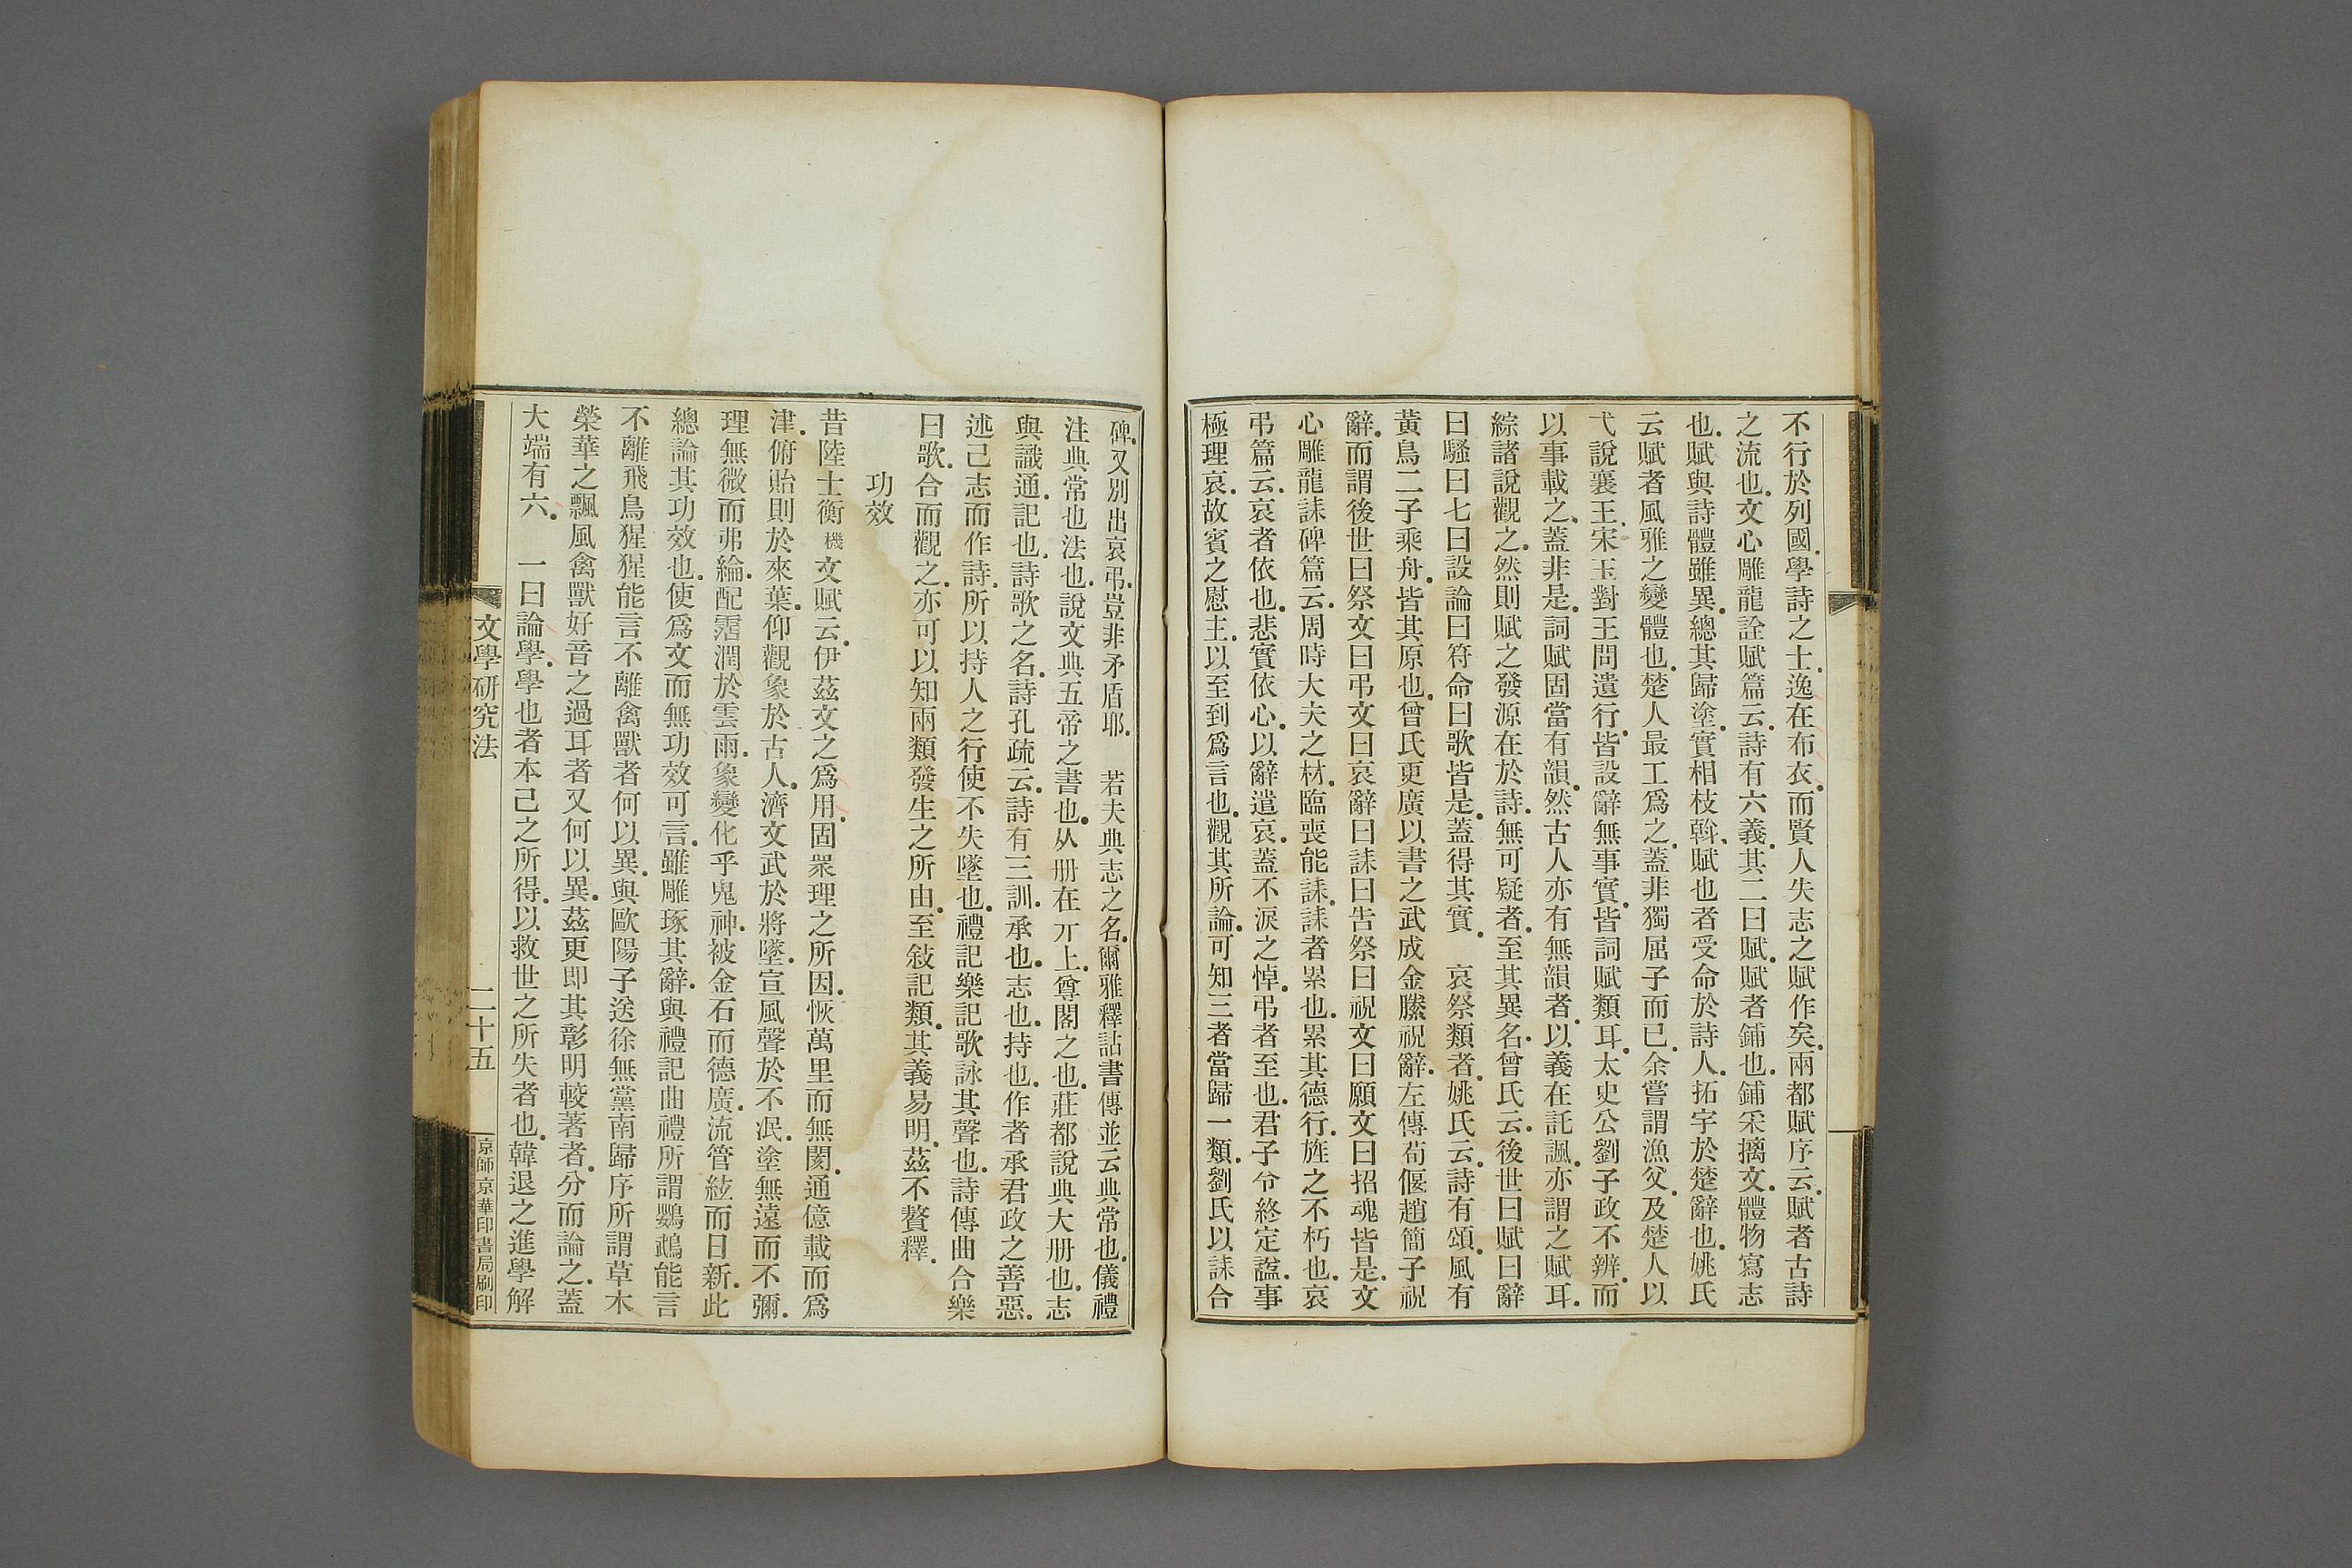 不行於列國.學詩之士.逸在布衣.而賢人失志之賦作矣.兩都賦序云.賦者古詩
之流也.文心雕龍詮賦篇云.詩有六義.其二曰賦.賦者鋪也.鋪采摛文.體物寫志
也.賦與詩體雖異.總其歸塗.實相枝榦.賦也者受命於詩人.拓宇於楚辭也.姚氏
云賦者風雅之變體也.楚人最工爲之.蓋非獨屈子而已.余嘗謂漁父.及楚人以
弋說襄王.宋玉對王問遺行.皆設辭無事實.皆詞賦類耳.太史公劉子政不辨.而
以事載之.蓋非是.詞賦固當有韻.然古人亦有無韻者.以義在託諷.亦謂之賦耳.
綜諸說觀之.然則賦之發源在於詩.無可疑者.至其異名.曾氏云.後世曰賦曰辭
曰騷曰七曰設論曰符命曰歌皆是.蓋得其實.　哀祭類者.姚氏云.詩有頌.風有
黃鳥二子乘舟.皆其原也.曾氏更廣以書之武成金縢祝辭.左傳荀偃趙簡子祝
辭.而謂後世曰祭文曰弔文曰哀辭曰誄曰告祭曰祝文曰願文曰招魂皆是.文
心雕龍誄碑篇云.周時大夫之材.臨喪能誄.誄者累也.累其德行.旌之不朽也.哀
弔篇云.哀者依也.悲實依心.以辭遣哀.蓋不淚之悼.弔者至也.君子令終定諡.事
極理哀.故賓之慰主.以至到爲言也.觀其所論.可知三者當歸一類.劉氏以誄合
碑.又別出哀弔.豈非矛盾耶.　若夫典志之名.爾雅釋詁書傳並云典常也.儀禮
注典常也法也.說文典五帝之書也.从册在丌上.尊閣之也.莊都說典大册也.志
與識通.記也.詩歌之名.詩孔疏云.詩有三訓.承也.志也.持也.作者承君政之善惡.
述己志而作詩.所以持人之行使不失墜也.禮記樂記歌詠其聲也.詩傳曲合樂
曰歌.合而觀之.亦可以知兩類發生之所由.至敍記類.其義易明.茲不贅釋.
功效
昔陸士衡機文賦云.伊茲文之爲用.固衆理之所因.恢萬里而無閡.通億載而爲
津.俯貽則於來葉.仰觀象於古人.濟文武於將墜.宣風聲於不泯.塗無遠而不彌.
理無微而弗綸.配霑潤於雲雨.象變化乎鬼神.被金石而德廣.流管絃而日新.此
總論其功效也.使爲文而無功效可言.雖雕琢其辭.與禮記曲禮所謂鸚鵡能言
不離飛鳥.猩猩能言不離禽獸者何以異.與歐陽子送徐無黨南歸序所謂草木
榮華之飄風禽獸好音之過耳者又何以異.茲更卽其彰明較著者.分而論之.蓋
大端有六.　一曰論學.學也者本己之所得.以救世之所失者也.韓退之進學解
文學研究法
二十五
京師京華印書局刷印